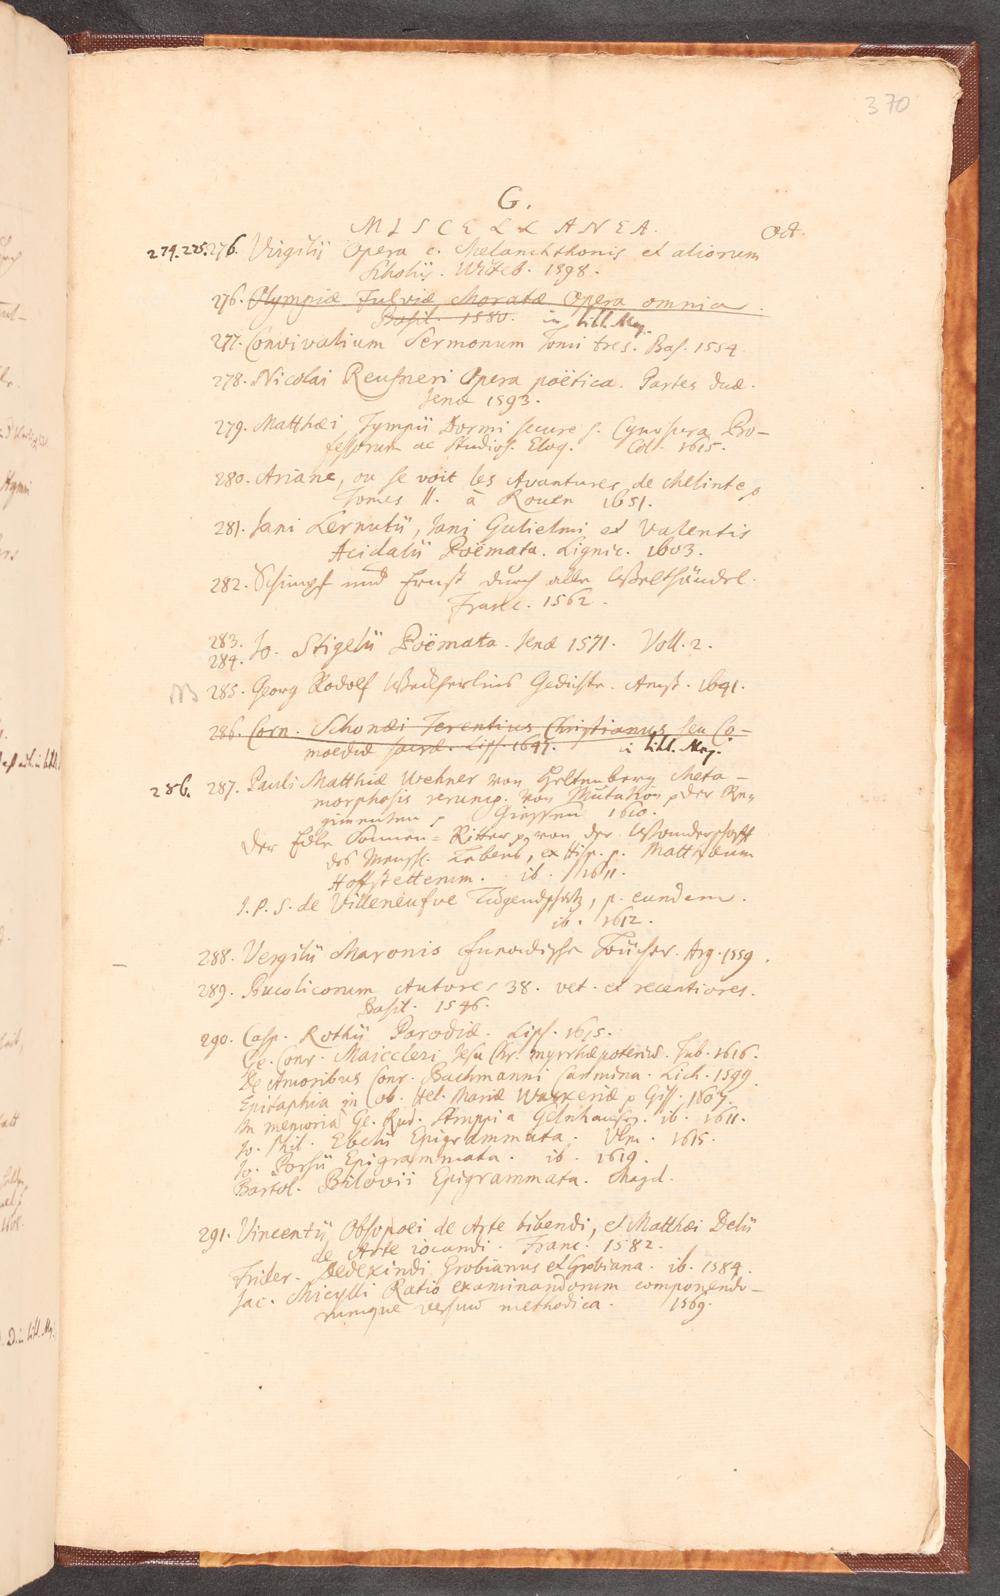 370
G.
MISCELLANEA. Oct.
274.275.276. Virgilii Opera c. Melanchthonis et aliorum
Scholiis. Witeb. 1598.
276. Olympiæ Fulviæ Moratæ Opera omnia.
Basil. 1580. in bibl. Maj.
277. Convivalium Sermonum Tomi tres. Bas. 1554.
278. Nicolai Reusneri Opera poëtica. Partes duæ.
Jenæ 1593.
279. Matthæi Tympii Dormi secure s. Cynosura Pro-
fessorum ac Studios. Eloq. Col. 1615.
280. Ariane, ou se voit les Avantures de Melinte
Tomes II. à Rouen 1651.
281. Jani Lernutii, Jani Gulielmi et Valentis
Acidalii Poëmata. Lignic. 1603.
282. Schimpf und Ernst durch alle Welthändel.
Franc. 1562.
283.
284. Jo. Stigelii Poëmata. Jenæ 1571. Voll. 2.
NB 285. Georg Rodolf Weckherlins Gedichte. Amst. 1641.
286. Corn. Schonæi Terentius Christianus seu Co-
moediæ sacræ. Lips. 1647. in bibl. Maj.
286. 287. Pauli Matthiæ Wehner von Geltenberg Meta-
morphosis rerump. von Mutation der Re-
gimenten Giessen 1610.
Der Edle Sonnen-Ritter von der Wanderschafft
des Menschl. Lebens, ex Hisp. p. Matthæum
Hoffstetterum. ib. 1611.
J. P. S. de Villeneufve Tugendschatz, p. eundem.
ib. 1612.
288. Vergilii Maronis Eneadische Bücher. Arg. 1559.
289. Bucolicorum Autores 38. vet. et recentiores.
Basil. 1546.
290. Casp. Rothii Parodiæ. Lips. 1615.
Ge. Conr. Maiccleri Jesu Chr. myrrhæpotenis. Tub. 1616.
De Amoribus Conr. Bachmanni Carmina. Lich. 1599.
Epitaphia in Ob. Hel. Mariæ Giss. 1607.
In memoriā Ge. Rud. a Gelnhausen. ib. 1611.
Jo. Phil. Ebelii Epigrammata. Vlm. 1615.
Jo. Porsii Epigrammata. ib. 1619.
Bartol. Bilovii Epigrammata. Magd.
291. Vincentii Obsopoei de Arte bibendi, et Matthæi Delii
de Arte iocandi. Franc. 1582.
Frider. Dedekindi Grobianus et Grobiana. ib. 1584.
Jac. Micylli Ratio examinandorum componendo-
rumque versuū methodica. 1569.